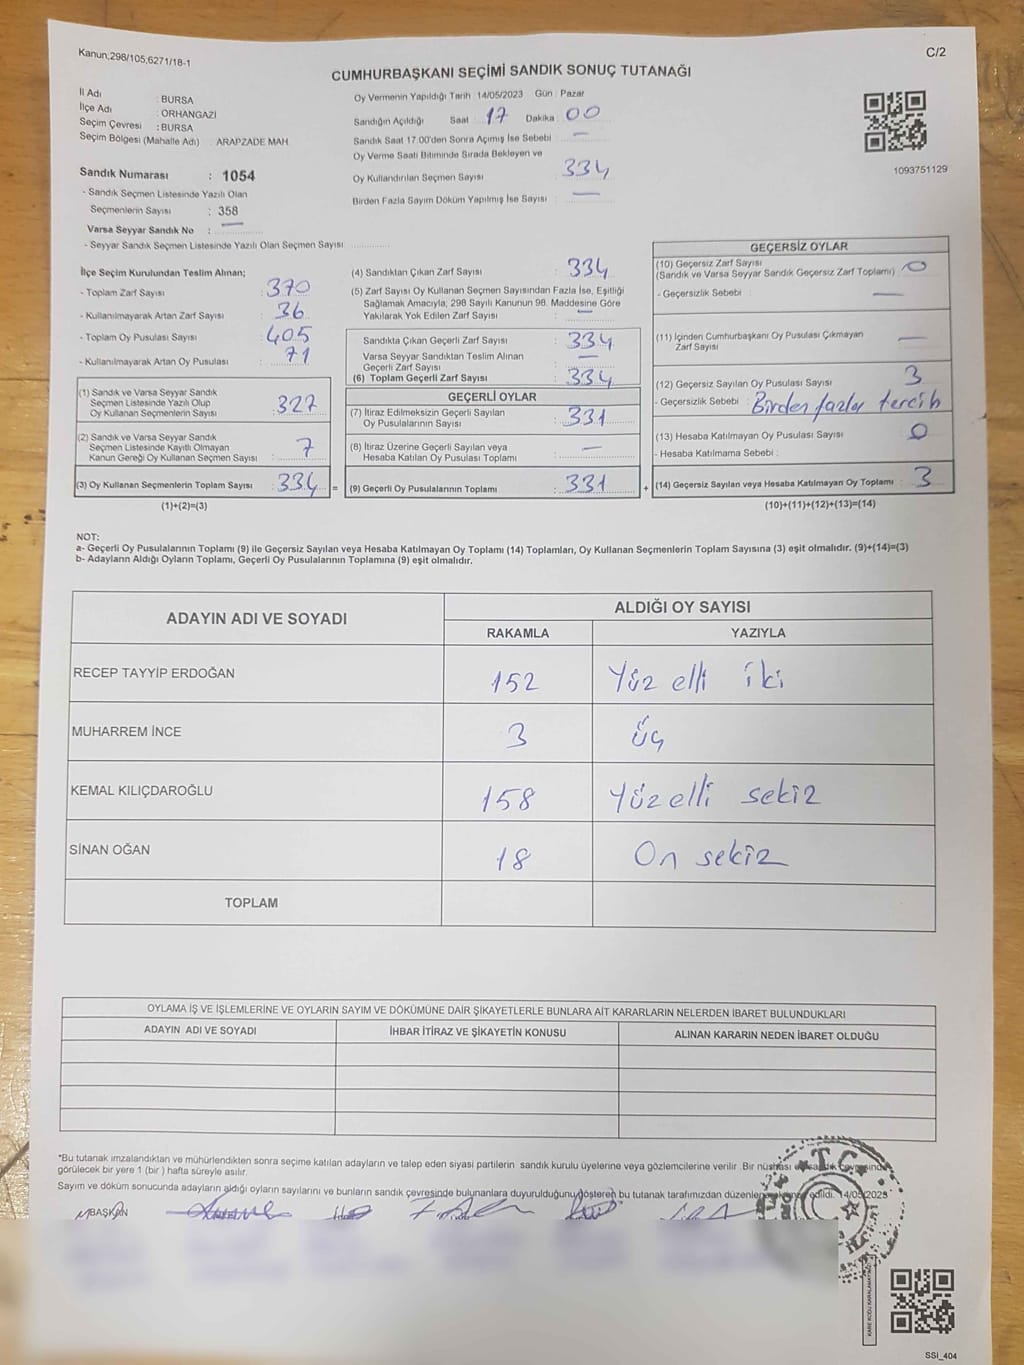 Kanun;298/105,6271/18-1
C/2
CUMHURBAŞKANI SEÇİMİ SANDIK SONUÇ TUTANAĞI
İl Adı : BURSA
İlçe Adı : ORHANGAZİ
Seçim Çevresi : BURSA
Seçim Bölgesi (Mahalle Adı) : ARAPZADE MAH
Sandık Numarası : 1054
- Sandık Seçmen Listesinde Yazılı Olan
Seçmenlerin Sayısı : 358
Varsa Seyyar Sandık No : —
- Seyyar Sandık Seçmen Listesinde Yazılı Olan Seçmen Sayısı:
Oy Vermenin Yapıldığı Tarih : 14/05/2023 Gün : Pazar
Sandığın Açıldığı Saat : 17 Dakika : 00
Sandık Saat 17.00'den Sonra Açımış İse Sebebi : —
Oy Verme Saati Bitiminde Sırada Bekleyen ve
Oy Kullandırılan Seçmen Sayısı : 334
Birden Fazla Sayım Döküm Yapılmış İse Sayısı : —
1093751129
İlçe Seçim Kurulundan Teslim Alınan;
- Toplam Zarf Sayısı : 370
- Kullanılmayarak Artan Zarf Sayısı : 36
- Toplam Oy Pusulası Sayısı : 405
- Kullanılmayarak Artan Oy Pusulası : 71
(1) Sandık ve Varsa Seyyar Sandık
Seçmen Listesinde Yazılı Olup
Oy Kullanan Seçmenlerin Sayısı : 327
(2) Sandık ve Varsa Seyyar Sandık
Seçmen Listesinde Kayıtlı Olmayan
Kanun Gereği Oy Kullanan Seçmen Sayısı : 7
(3) Oy Kullanan Seçmenlerin Toplam Sayısı : 334 =
(1)+(2)=(3)
(4) Sandıktan Çıkan Zarf Sayısı : 334
(5) Zarf Sayısı Oy Kullanan Seçmen Sayısından Fazla İse, Eşitliği
Sağlamak Amacıyla, 298 Sayılı Kanunun 98. Maddesine Göre
Yakılarak Yok Edilen Zarf Sayısı : —
Sandıkta Çıkan Geçerli Zarf Sayısı : 334
Varsa Seyyar Sandıktan Teslim Alınan
Geçerli Zarf Sayısı : —
(6) Toplam Geçerli Zarf Sayısı : 334
GEÇERLİ OYLAR
(7) İtiraz Edilmeksizin Geçerli Sayılan
Oy Pusulalarının Sayısı : 331
(8) İtiraz Üzerine Geçerli Sayılan veya
Hesaba Katılan Oy Pusulası Toplamı : —
(9) Geçerli Oy Pusulalarının Toplamı : 331 +
GEÇERSİZ OYLAR
(10) Geçersiz Zarf Sayısı
(Sandık ve Varsa Seyyar Sandık Geçersiz Zarf Toplamı) : 0
- Geçersizlik Sebebi : —
(11) İçinden Cumhurbaşkanı Oy Pusulası Çıkmayan
Zarf Sayısı : —
(12) Geçersiz Sayılan Oy Pusulası Sayısı : 3
- Geçersizlik Sebebi : Birden fazla tercih
(13) Hesaba Katılmayan Oy Pusulası Sayısı : 0
- Hesaba Katılmama Sebebi :
(14) Geçersiz Sayılan veya Hesaba Katılmayan Oy Toplamı : 3
(10)+(11)+(12)+(13)=(14)
NOT:
a- Geçerli Oy Pusulalarının Toplamı (9) ile Geçersiz Sayılan veya Hesaba Katılmayan Oy Toplamı (14) Toplamları, Oy Kullanan Seçmenlerin Toplam Sayısına (3) eşit olmalıdır. (9)+(14)=(3)
b- Adayların Aldığı Oyların Toplamı, Geçerli Oy Pusulalarının Toplamına (9) eşit olmalıdır.
ADAYIN ADI VE SOYADI ALDIĞI OY SAYISI
RAKAMLA YAZIYLA
RECEP TAYYİP ERDOĞAN 152 Yüz elli iki
MUHARREM İNCE 3 Üç
KEMAL KILIÇDAROĞLU 158 Yüzelli sekiz
SİNAN OĞAN 18 On sekiz
TOPLAM
OYLAMA İŞ VE İŞLEMLERİNE VE OYLARIN SAYIM VE DÖKÜMÜNE DAİR ŞİKAYETLERLE BUNLARA AİT KARARLARIN NELERDEN İBARET BULUNDUKLARI
ADAYIN ADI VE SOYADI İHBAR İTİRAZ VE ŞİKAYETİN KONUSU ALINAN KARARIN NEDEN İBARET OLDUĞU
*Bu tutanak imzalandıktan ve mühürlendikten sonra seçime katılan adayların ve talep eden siyasi partilerin sandık kurulu üyelerine veya gözlemcilerine verilir. Bir nüshası da sandık çevresinde
görülecek bir yere 1 (bir ) hafta süreyle asılır.
Sayım ve döküm sonucunda adayların aldığı oyların sayılarını ve bunların sandık çevresinde bulunanlara duyurulduğunu gösteren bu tutanak tarafımızdan düzenlenerek imza edildi. 14/05/2023
BAŞKAN
T.C.
KARE KODU KARALAMAYINIZ
SSİ_404